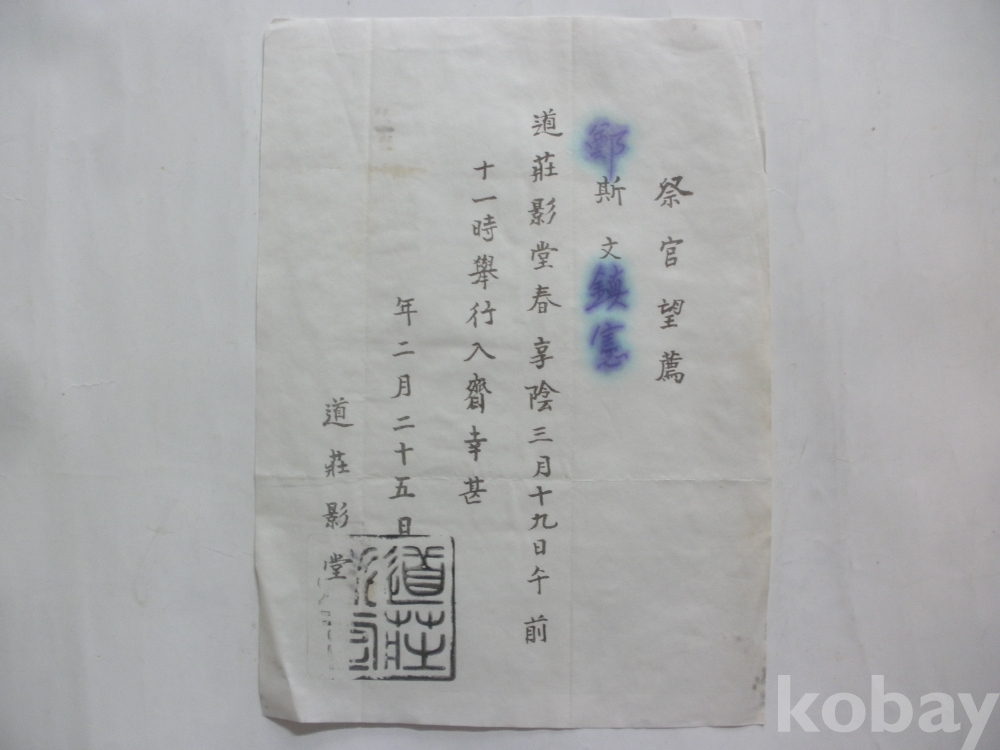 祭官望薦
鄭斯文鎮憲
道莊影堂春享陰三月十九日午前
十一時擧行入齋幸甚
年二月二十五日
道莊影堂
道莊
kobay